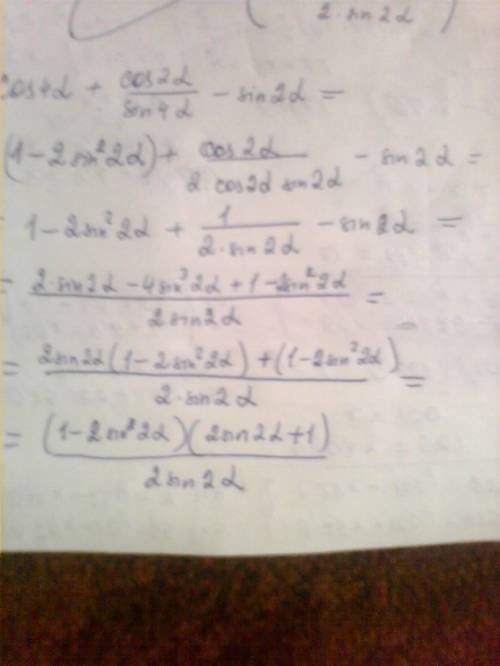 2·sin2α
cos4α + cos2α/sin4α − sin2α =
(1−2sin²2α) + cos2α/(2·cos2α sin2α) − sin2α =
= 1−2sin²2α + 1/(2·sin2α) − sin2α =
= (2·sin2α − 4sin³2α + 1 − 2sin²2α)/(2sin2α) =
= (2sin2α(1−2sin²2α) + (1−2sin²2α))/(2·sin2α) =
= (1−2sin²2α)(2sin2α+1)/(2sin2α)